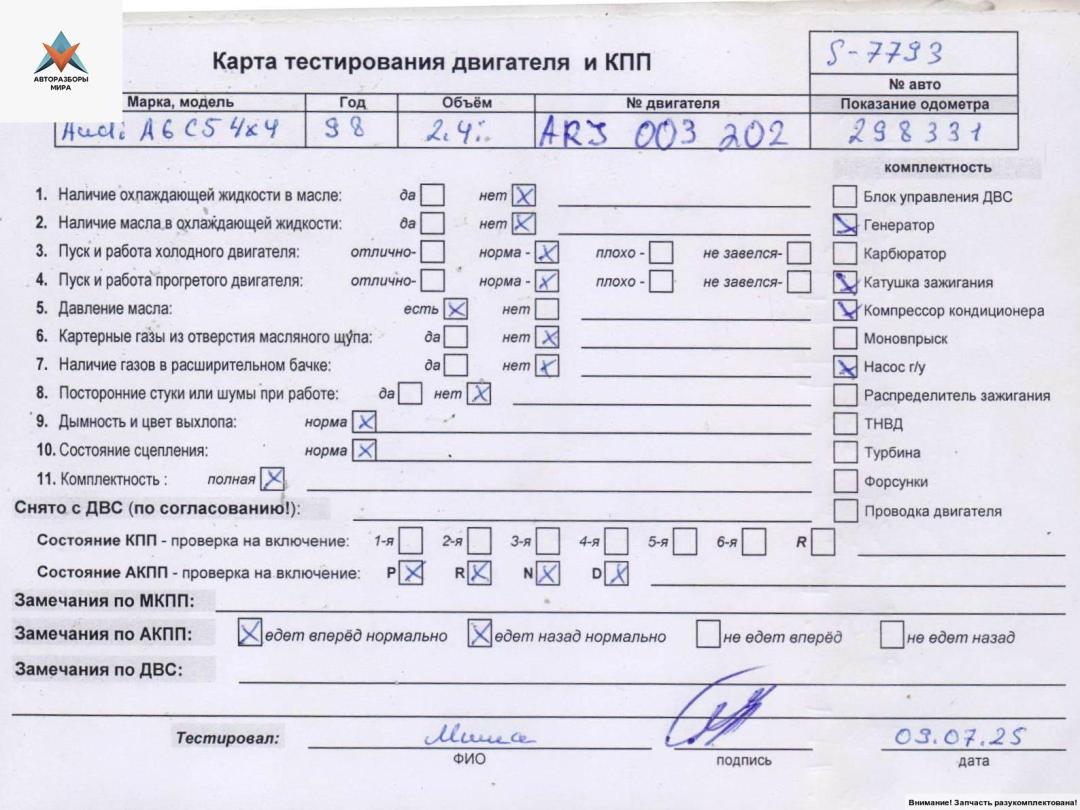 АВТОРАЗБОРЫ
МИРА
Карта тестирования двигателя и КПП
S-7793
№ авто
Марка, модель Год Объём № двигателя Показание одометра
Audi A6 C5 4x4 98 2.4i ARJ 003 202 298331
комплектность
1. Наличие охлаждающей жидкости в масле: да нет X Блок управления ДВС
2. Наличие масла в охлаждающей жидкости: да нет X Генератор
3. Пуск и работа холодного двигателя: отлично- норма - X плохо - не завелся- Карбюратор
4. Пуск и работа прогретого двигателя: отлично- норма - X плохо - не завелся- Катушка зажигания
5. Давление масла: есть X нет Компрессор кондиционера
6. Картерные газы из отверстия масляного щупа: да нет X Моновпрыск
7. Наличие газов в расширительном бачке: да нет X Насос г/у
8. Посторонние стуки или шумы при работе: да нет X Распределитель зажигания
9. Дымность и цвет выхлопа: норма X ТНВД
10. Состояние сцепления: норма X Турбина
11. Комплектность : полная X Форсунки
Снято с ДВС (по согласованию!): Проводка двигателя
Состояние КПП - проверка на включение: 1-я 2-я 3-я 4-я 5-я 6-я R
Состояние АКПП - проверка на включение: P X R X N X D X
Замечания по МКПП:
Замечания по АКПП: X едет вперёд нормально X едет назад нормально не едет вперёд не едет назад
Замечания по ДВС:
Тестировал: Миша 03.07.25
ФИО подпись дата
Внимание! Запчасть разукомплектована!